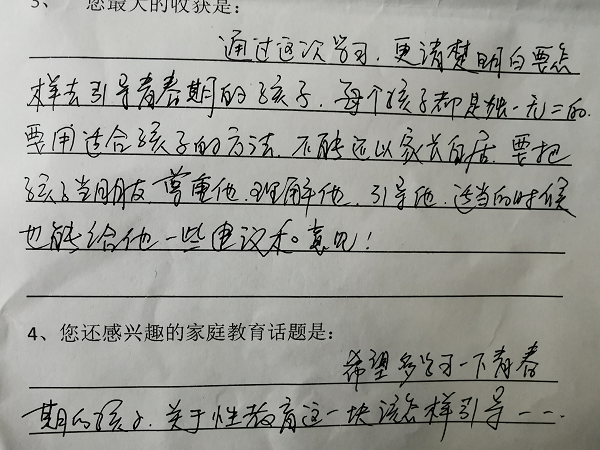 3、 您最大的收获是:
通过这次学习,更清楚明白要怎
样去引导青春期的孩子.每个孩子都是独一无二的.
要用适合孩子的方法.不能远以家长自居.要把
孩子当朋友 尊重他.理解他.引导他.适当的时候
也能给他一些建议和意见!
4、您还感兴趣的家庭教育话题是:
希望多学习一下青春
期的孩子.关于性教育这一块该怎样引导……